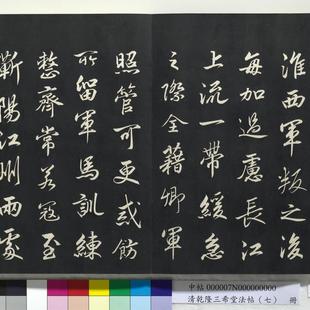 淮西軍叛之後
每加過慮長江
上流一帶緩急
之際全藉卿軍
照管可更戒飭
所留軍馬訓練
整齊常若寇至
蘄陽江州兩處
中帖 000007N000000000
清乾隆三希堂法帖（七） 冊